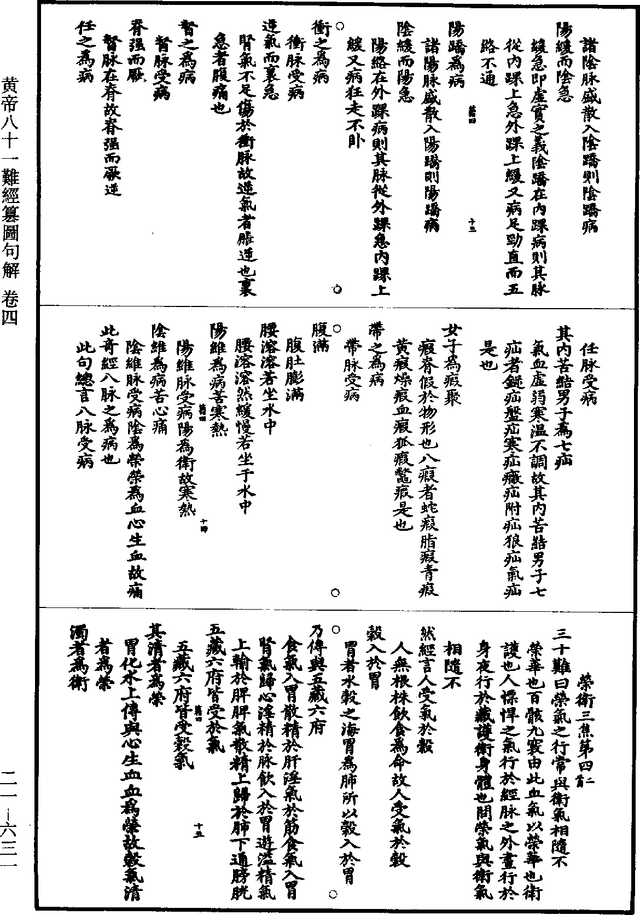 諸陰脉盛散入陰蹻則陰蹻病
陽緩而陰急
緩急即虛實之義陰蹻在內踝病則其脉
從內踝上急外踝上緩又病足勁直而五
路不通
陽蹻為病
諸陽脉盛散入陽蹻則陽蹻病
陰緩而陽急
陽絡在外踝病則其脉從外踝急內踝上
緩又病狂走不卧
衝之為病
衝脉受病
逆氣而裏急
腎氣不足傷於衝脉故逆氣者脹逆也裏
急者腹痛也
督之為病
督脉受病
脊强而厥
督脉在脊故脊强而厥逆
任之為病
任脉受病
其内苦結男子為七疝
氣血虛弱寒溫不調故其内苦結男子七
疝者㿗疝盤疝寒疝癥疝附疝狼疝氣疝
是也
女子為瘕聚
瘕脊假於物形也八瘕者蛇瘕脂瘕青瘕
黃瘕燥瘕血瘕狐瘕鱉瘕是也
帶之為病
帶脉受病
腹滿
腹肚膨滿
腰溶溶若坐水中
腰溶溶然緩慢若坐于水中
陽維為病苦寒熱
陽維脉受病陽為衛故寒熱
陰維為病苦心痛
陰維脉受病陰為榮榮為血心生血故痛
此奇經八脉之為病也
此句總言八脉受病
榮衛三焦第四
三十難曰榮氣之行常與衛氣相隨不
榮華也百骸九竅由此血氣以榮華也衛
護也人慓悍之氣行於經脉之外晝行於
身夜行於藏護衛身體也問榮氣與衛氣
相隨不
然經言人受氣於穀
人無根株飲食為命故人受氣於穀
穀入於胃
胃者水穀之海胃為肺所以穀入於胃
乃傳與五藏六府
食氣入胃散精於肝淫氣於筋食氣入胃
腎氣歸心淫精於脉飲入於胃遊溢精氣
上輸於脾脾氣散精上歸於肺下通膀胱
五藏六府皆受於氣
五藏六府皆受穀氣
其清者為榮
胃化水上傳與心生血血為榮故穀氣清
者為榮
濁者為衛
黄帝八十一難經纂圖句解 卷四
二一-六三一